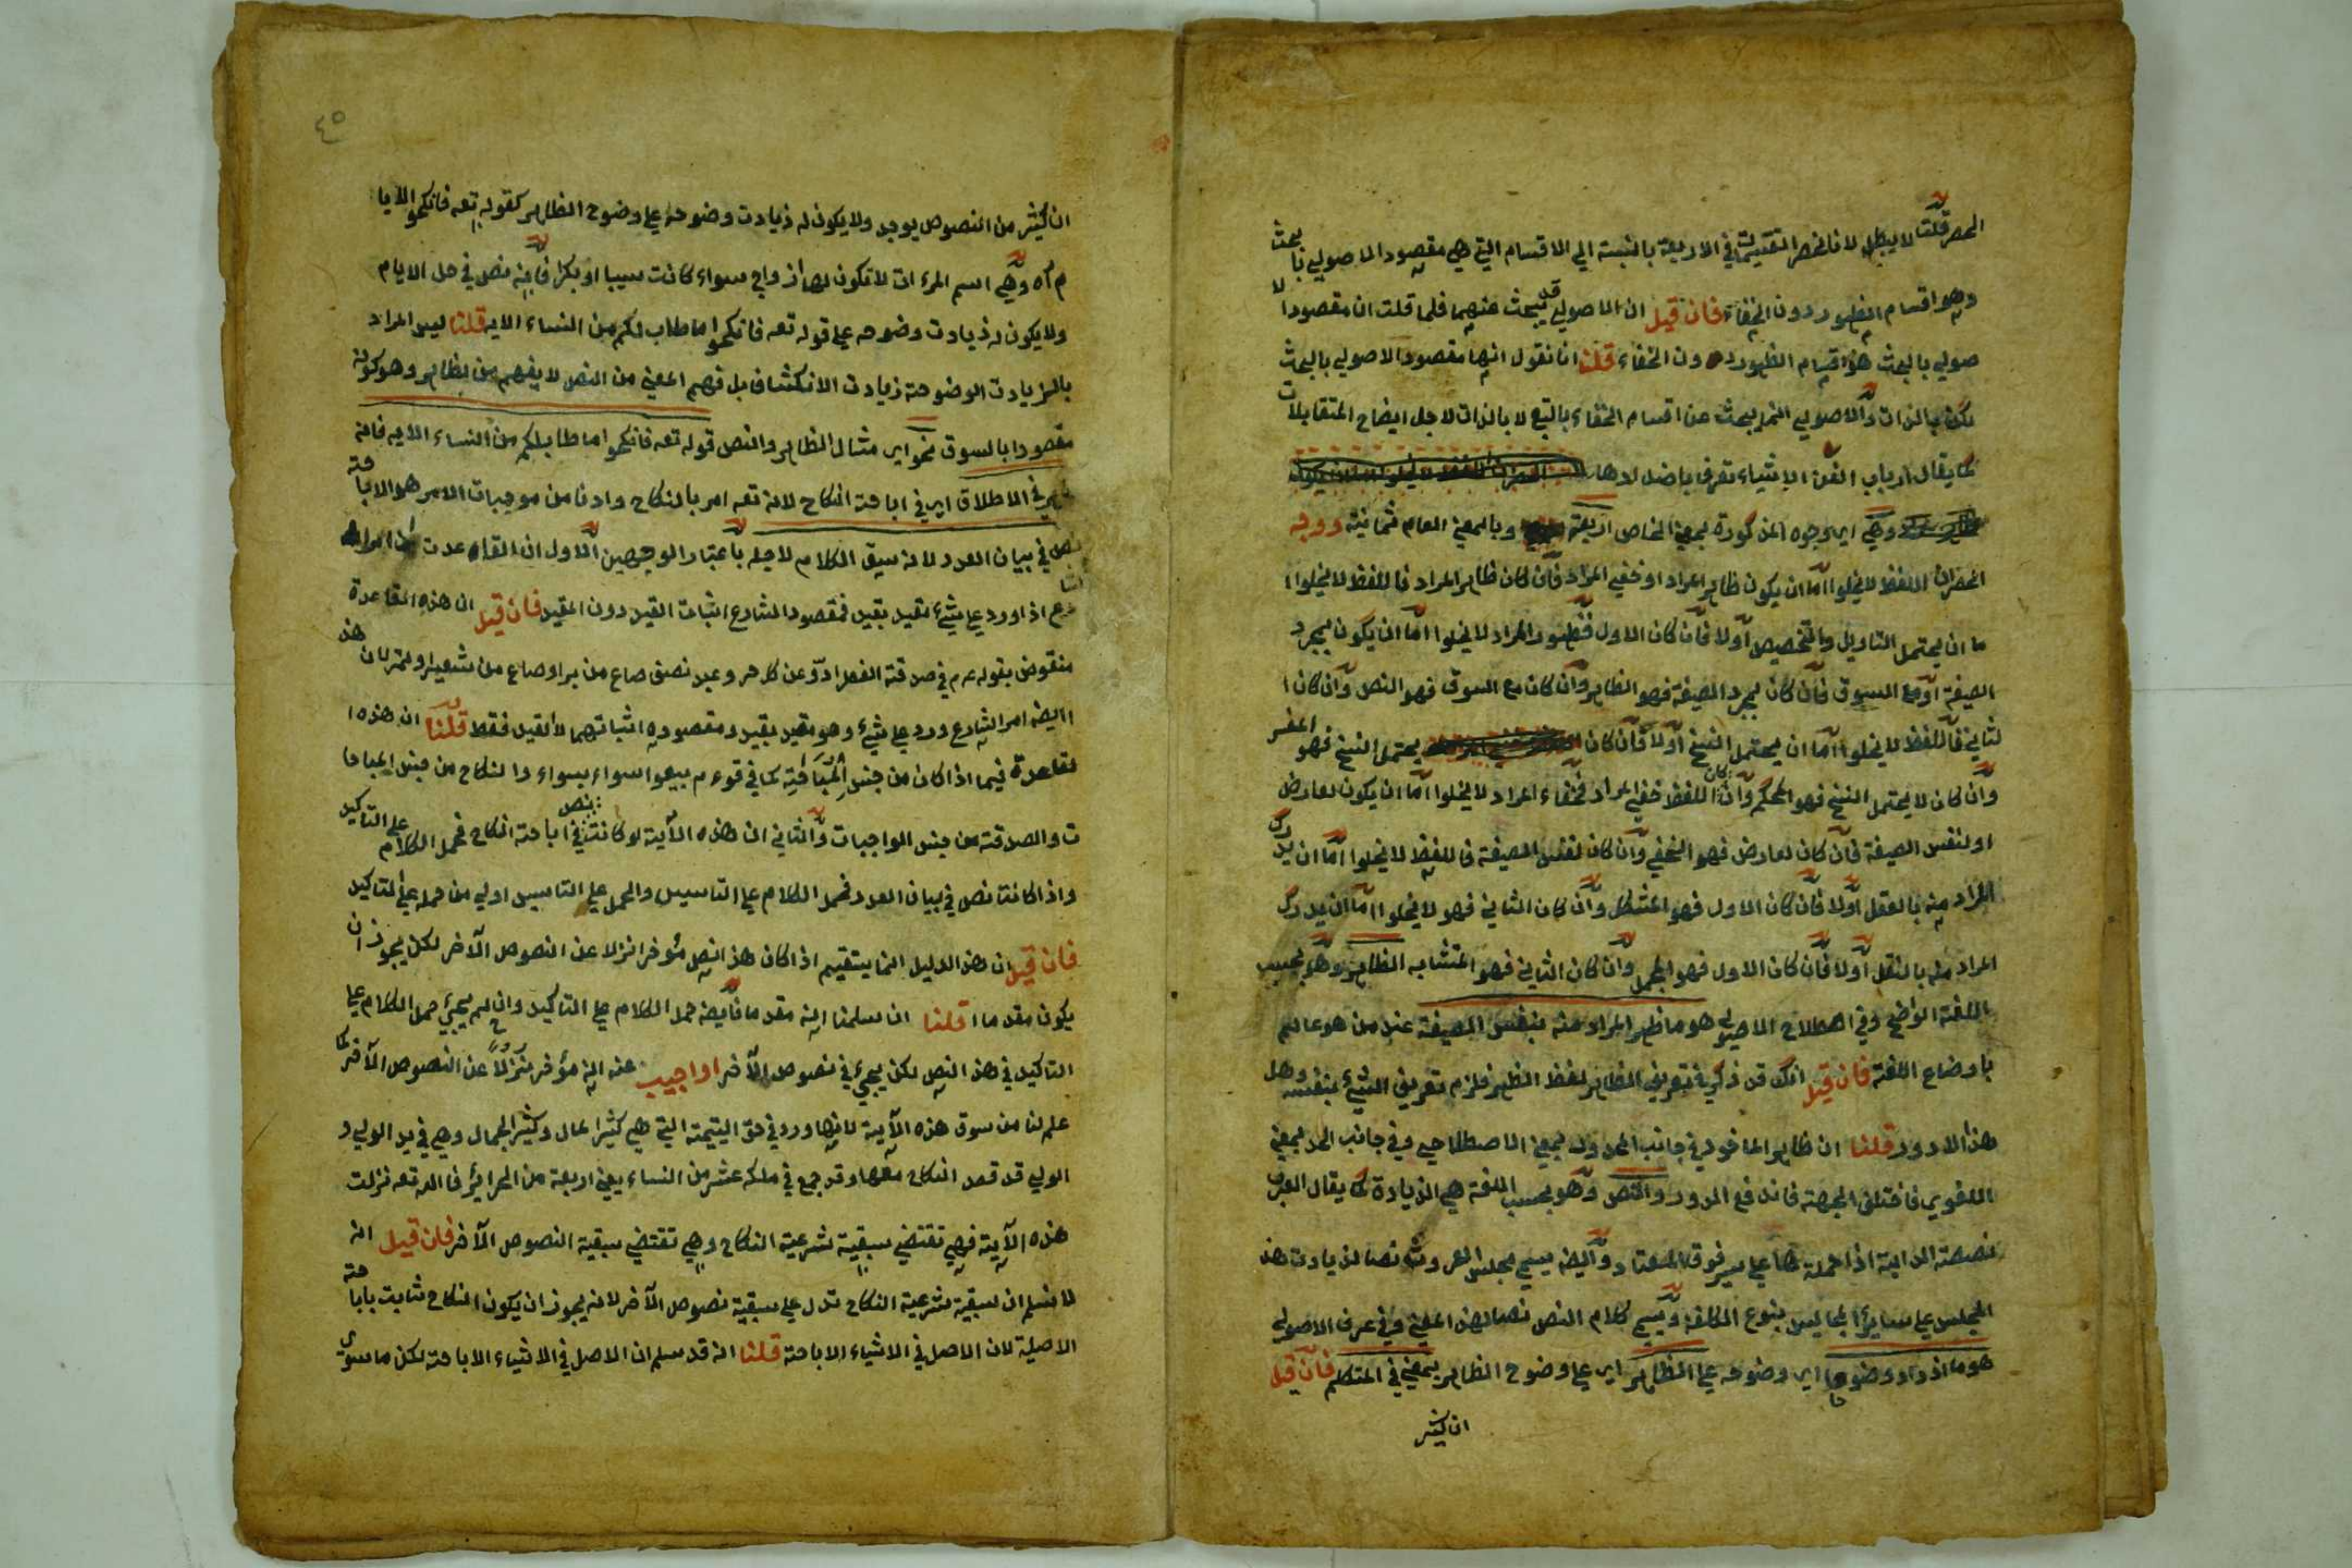 الحصر قلت لا يبطل لانا نحصر التقسيم في الاربعة بالنسبة الي الاقسام التي هي مقصود الاصولي بالبحث
وهو اقسام الظهور دون الخفاء فان قيل ان الاصولي قد يبحث عنهما فلما قلت ان مقصود الا
صولي بالبحث هو اقسام الظهور دون الخفاء قلنا انا نقول انها مقصود الاصولي بالبحث
لكن بالذات والاصولي انما يبحث عن اقسام الخفاء بالتبع لا بالذات لاجل ايضاح المتقابلات
كما يقال ارباب الفن الاشياء تعرف باضدادها
وهي اي وجوه المذكورة بمعني الخاص اربعة وبالمعني العام ثمانية ووجه
الحصر ان اللفظ لا يخلوا اما ان يكون ظاهر المراد او خفي المراد فان كان ظاهر المراد فاللفظ لا يخلوا ا
ما ان يحتمل التاويل والتخصيص اولا فان كان الاول فظهور المراد لا يخلوا اما ان يكون بمجرد
الصيغة او مع السوق فان كان بمجرد الصيغة فهو الظاهر وان كان مع السوق فهو النص وان كان ا
لثاني فاللفظ لا يخلوا اما ان يحتمل النسخ اولا فان كان يحتمل النسخ فهو المفسر
وان كان لا يحتمل النسخ فهو المحكم وان كان اللفظ خفي المراد فخفاء المراد لا يخلوا اما ان يكون لعارض
او لنفس الصيغة فان كان لعارض فهو الخفي وان كان لنفس الصيغة فاللفظ لا يخلوا اما ان يدرك
المراد منه بالعقل اولا فان كان الاول فهو المشكل وان كان الثاني فهو لا يخلوا اما ان يدرك
المراد منه بالنقل اولا فان كان الاول فهو المجمل وان كان الثاني فهو المتشابه الظاهر وهو بحسب
اللغة الواضح وفي اصطلاح الاصولي هو ما ظهر المراد منه بنفس الصيغة عند من هو عالم
باوضاع اللغة فان قيل انك قد ذكر في تعريف الظاهر لفظ الظهر فلزم تعريف الشيء بنفسه وهل
هذا الا دور قلنا ان ظاهر الماخوذ في جانب المحدود بمعني الاصطلاحي وفي جانب الحد بمعني
اللغوي فاختلف الجهة فاندفع الدور والنص وهو بحسب اللغة هي الزيادة كما يقال العرب
نصصة الدابة اذا حملة ها علي سير فوق المعتاد وايضه يسمي مجلس العروش نصا لزيادت هذ
المجلس علي ساير المجاليس بنوع الكلفة ويسمي كلام النص نصا لهذ المعني وفي عرف الاصولي
هو ما ازداد وضوحا اي وضوحه علي الظاهر اي علي وضوح الظاهر بمعني في المتكلم فان قيل
ان كثير
٤٥
ان كثير من النصوص يوجد ولا يكون له زيادت وضوحه علي وضوح الظاهر كقوله تعه فانكحوا الايا
م آه وهي اسم المرءات لا تكون لها زواج سواء كانت سيبا او بكرا فانه نص في حل الايام
ولا يكون له زيادت وضوحه علي قوله تعه فانكحوا ما طاب لكم من النساء الايه قلنا ليس المراد
بالزيادت الوضوحة زيادت الانكشاف بل فهم المعني من النص لا يفهم من الظاهر وهو كونه
مقصودا بالسوق نحو اي مثال الظاهر والنص قوله تعه فانكحوا ما طاب لكم من النساء الايه فانه
ظاهر في الاطلاق اي في اباحة النكاح لانه تعه امر بالنكاح وادنا من موجبات الامر هو الاباحة
نص في بيان العدد لانه سيق الكلام لاجله باعتبار الوجهين الاول ان القاعدت ان امر الشا
رع اذا ورد علي شيء مقيد بقيد فمقصود الشارع اثبات القيد دون المقيد فان قيل ان هذه القاعدة
منقوض بقوله عم في صدقة الفطر ادوا عن كل حر وعبد نصف صاع من بر او صاع من شعير او تمر لان هذ
ا ايضه امر الشارع ورد علي شيء وهو مقيد بقيد ومقصوده اثباتهما لا القيد فقط قلنا ان هذه ا
لقاعدة فيما اذا كان من جنس المباحية كما في قوءم بيعوا سواء بسواء والنكاح من جنس المباحا
ت والصدقة من جنس الواجبات والثاني ان هذه الآية لو كانت نص في اباحة النكاح فحمل الكلام علي التاكيد
واذا كانت نص في بيان العدد فحمل الكلام علي التاسيس والحمل علي التاسيس اولي من حمله علي التاكيد
فان قيل ان هذ الدليل انما يستقيم اذا كان هذ النص مؤخر انزلا عن النصوص الآخر لكن يجوز ان
يكون مقدما قلنا ان سلمنا انه مقدما فايضه حمل الكلام علي التاكيد وان لم يجيء حمل الكلام علي
التاكيد في هذ النص لكن يجيء في نصوص الآخر او اجيب عنه انه مؤخر نزولا عن النصوص الآخر كما
علم لنا من سوق هذه الآية لانها ورد في حق اليتيمة التي هي كثير المال وكثير الجمال وهي في يد الولي و
الولي قد قصد النكاح معها وقد جمع في ملكه عشر من النساء يعني اربعة من الحرائر فالله تعه نزلت
هذه الآية فهي تقتضي سبقية شرعية النكاح وهي تقتضي سبقية النصوص الآخر فان قيل انه
لا نسلم ان سبقية شرعية النكاح تدل علي سبقية نصوص الآخر لانه يجوز ان يكون النكاح ثابت باباحة
الاصلية لان الاصل في الاشياء الاباحة قلنا انه قد سلم ان الاصل في الاشياء الاباحة لكن ما سوي